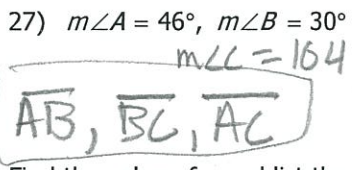 27) m∠A = 46°, m∠B = 30°
m∠C = 104
A̅B̅, B̅C̅, A̅C̅